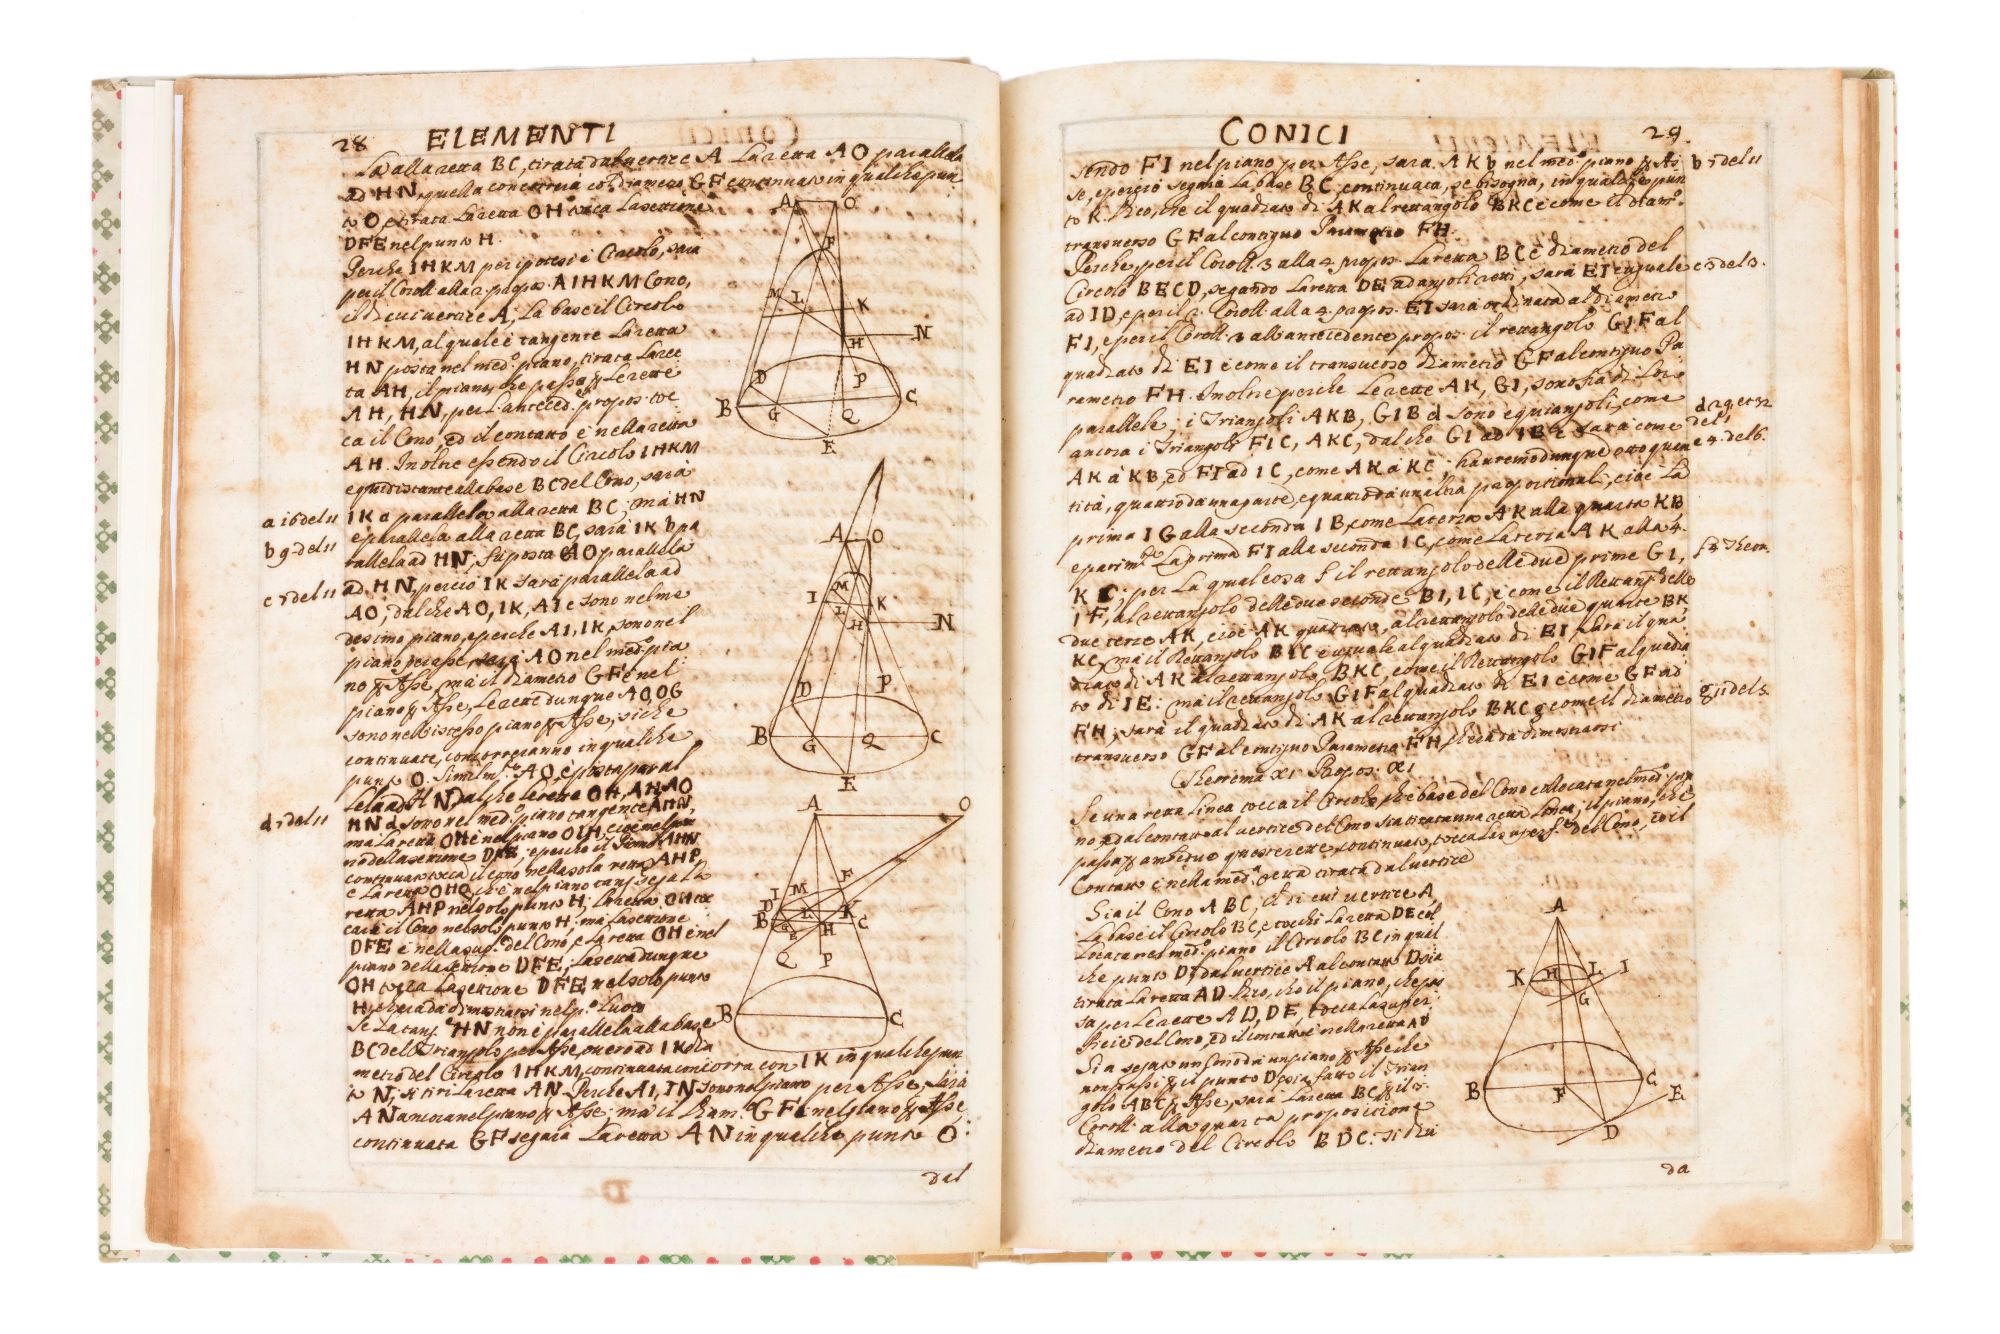 28 ELEMENTI
la alla retta BC, tirata dal vertice A la retta AO parallela
ad HN, quella concorrerà col diametro GF continuato in qualche pun
to O e tirata la retta OH tocca la settione
DFE nel punto H.
Perche IHKM per ipotesi è Circolo, sarà
per il Coroll. alla 2. propos. AIHKM Cono,
il di cui vertice A, la base il Circolo
IHKM, al quale è tangente la retta
HN posta nel med.o piano, tirata la ret
ta AH, il piano, che passa p le rette
AH, HN, per l'anteced. propos. toc
ca il Cono, ed il contatto è nella retta
AH. Inoltre essendo il Circolo IHKM
equidistante alla base BC del Cono, sarà
a 16 del 11 IK a parallela alla retta BC; mà HN
è parallela alla retta BC, sarà IK b pa
b 9. del 11 rallela ad HN; si posta AO parallela
c 7 del 11 ad HN, perciò IK sarà parallela ad
AO, dal che AO, IK, AI c sono nel me
desimo piano, e perche AI, IK, sono nel
piano per asse, sarà AO nel med.o pia
no p Asse, ma il diametro GF è nel
piano p Asse, le rette dunque AO, OG
sono nell'istesso piano p Asse, siche
continuate, concorreranno in qualche
punto O. Similm.te AO è posta paral
lela ad HN, dal che le rette OH, AH, AO
d 7 del 11 HN d sono nel med.o piano tangente AHN,
ma la retta OH è nel piano OIH, cioè nel pia
no della settione DFE; e perche il piano AHN
continuato tocca il Cono nella sola retta AHP,
e la retta OHQ, ch'è nel piano tang. sega la
retta AHP nel solo punto H; la retta OH toc
carà il Cono nel solo punto H; ma la settione
DFE è nella sup.e del Cono, e la retta OH è nel
piano della settione DFE; la retta dunque
OH tocca la settione DFE nel solo punto
H, che era da dimostrarsi nel p.o luoco
Se la tang.e HN non è parallela alla base
BC del Triangolo per Asse, overo ad IK dia
metro del Circolo IHKM, continuata concorra con IK in qualche pun
to N; si tiri la retta AN. Perche AI, IN sono nel piano per Asse, sarà
AN ancora nel piano p Asse; ma il Diam.o GF è nel piano p Asse,
continuata GF segarà la retta AN in qualche punto O:
dal
A O
F
M L K
N
H
D P
B G Q C
E
A O
M
I K
L
H N
D P
B G Q C
E
A O
M F
I
D
L K
B C
G E H
Q P
B C
CONICI 29.
sendo FI nel piano per Asse, sarà AK b nel med.o piano p As b 7 del 11
se, e perciò segarà la base BC continuata, se bisogna, in qualche pun
to K. Dico, che il quadrato di AK al rettangolo BKC è come il diam.o
transverso GF al contiguo Parametro FH.
Perche, per il Coroll. 3 alla 4. propos. la retta BC è diametro del
Circolo BECD, segando la retta DE ad angoli retti, sarà EI c uguale c 3 del 3.
ad ID, e per il 2. Coroll. alla 4. propos. EI sarà ordinata al diametro
FI, e per il Coroll. 3 all'antecedente propos. il rettangolo GIF al
quadrato di EI è come il transverso diametro GF al contiguo Pa
rametro FH. Inoltre perche le rette AK, GI, sono frà di loro
parallele; i Triangoli AKB, GIB d sono equiangoli, come d 29. et 32 del 1
ancora i Triangoli FIC, AKC, dal che GI ad IB e sarà come
AK à KB, ed FI ad IC, come AK à KC; hauremo dunque otto quan e 4. del 6.
tità, quattro da una parte, e quattro da un'altra proportionali, cioè la
prima IG alla seconda IB come la terza AK alla quarta KB
e parim.te la prima FI alla seconda IC, come la terza AK alla 4. f 2 Theor.
KC; per la qual cosa f il rettangolo delle due prime GI,
IF, al rettangolo delle due seconde BI, IC, è come il Rettang.o delle
due terze AK, cioè AK quadrato, al rettangolo delle due quarte BK,
KC, mà il Rettangolo BIC è uguale al quadrato di EI, sarà il qua
drato di AK al rettangolo BKC, come il Rettangolo GIF al quadra
to di IE: ma il rettangolo GIF al quadrato di EI è come GF ad
FH; sarà il quadrato di AK al rettangolo BKC g come il diametro g 11 del 5.
transverso GF al contiguo Parametro FH, che era da dimostrarsi
Theorema XI Propos. XI
Se una retta linea tocca il Circolo, che è base del Cono collocata nel med.o pia
no, e dal contatto al vertice del Cono sia tirata una retta linea; il piano, che
passa p ambidue queste rette continuato, tocca la superf.e del Cono, ed il
Contatto è nella med.a retta tirata dal vertice
Sia il Cono ABC, il di cui vertice A,
la base il Circolo BC, e tocchi la retta DE col
locata nel med.o piano il Circolo BC in qual
che punto D, e dal vertice A al contatto D sia
tirata la retta AD. Dico, che il piano, che pas
sa per le rette AD, DE, tocca la super
ficie del Cono, ed il contatto è nella retta AD
Sia segato un Cono da un piano p Asse che
non passi p il punto D, e sia fatto il Trian
golo ABC p Asse, sarà la retta BC p il 3.
Coroll. alla quarta propositione
diametro del Circolo BDC: si divi
da
A
K H L I
G
B F C
E
D